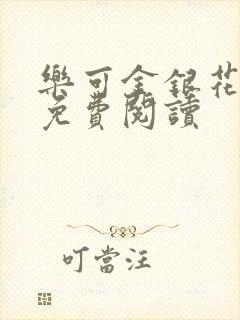 樂可金銀花
免費閱讀
叮當汪